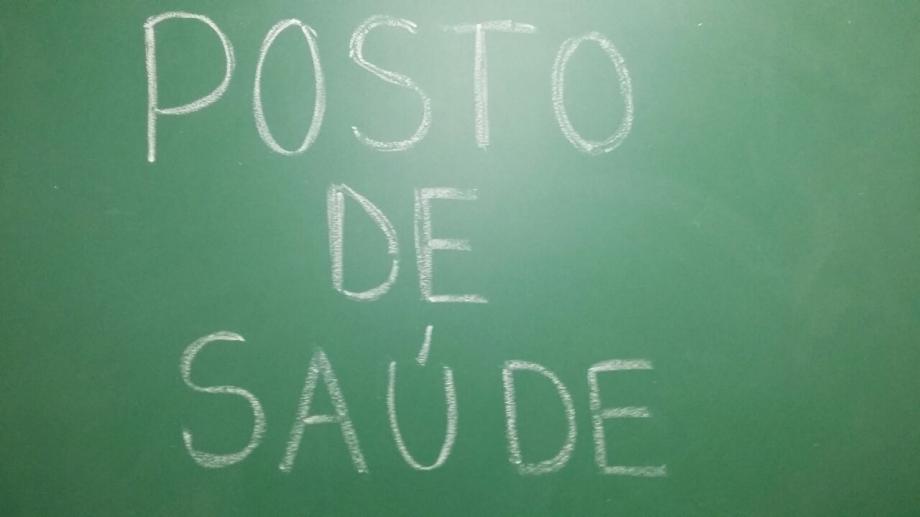 POSTO
DE
SAÚDE